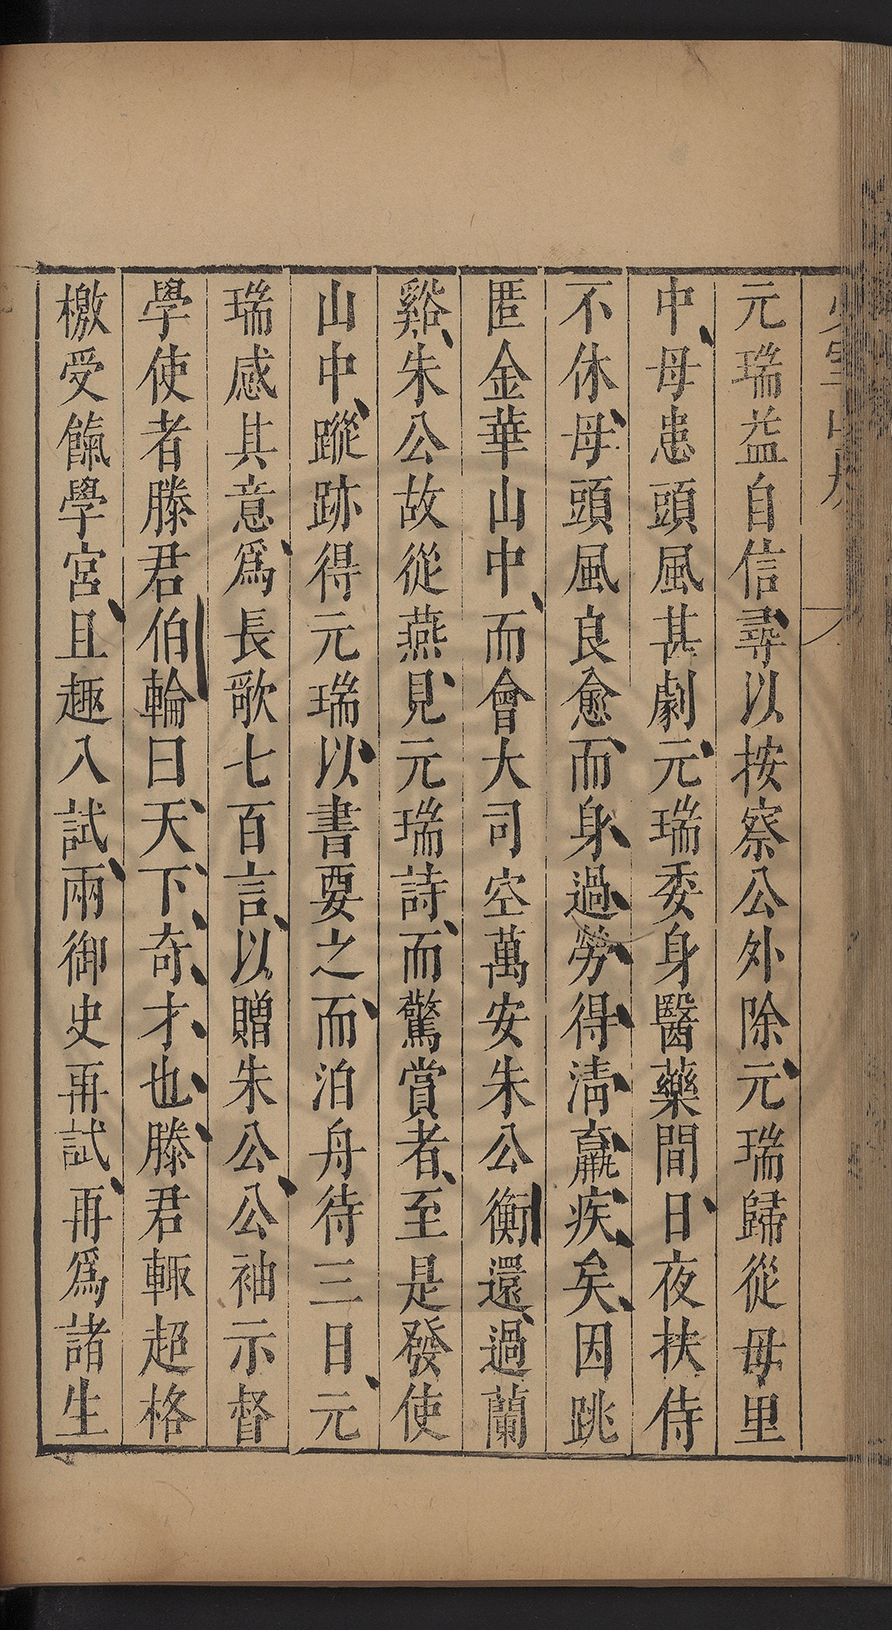 元瑞益自信尋以按察公外除元瑞歸從母里
中母患頭風甚劇元瑞委身醫藥間日夜扶侍
不休母頭風良愈而身過勞得淸羸疾矣因跳
匿金華山中而會大司空萬安朱公衡還過蘭
谿朱公故從燕見元瑞詩而驚賞者至是發使
山中蹤跡得元瑞以書要之而泊舟待三日元
瑞感其意爲長歌七百言以贈朱公公袖示督
學使者滕君伯輪曰天下奇才也滕君輙超格
檄受餼學宮且趣入試兩御史再試再爲諸生